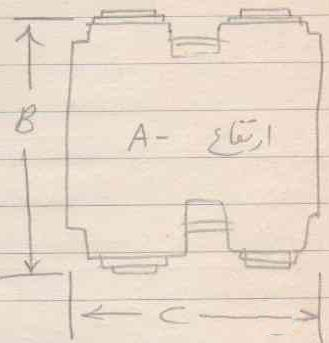 B
A - ارتفاع
C